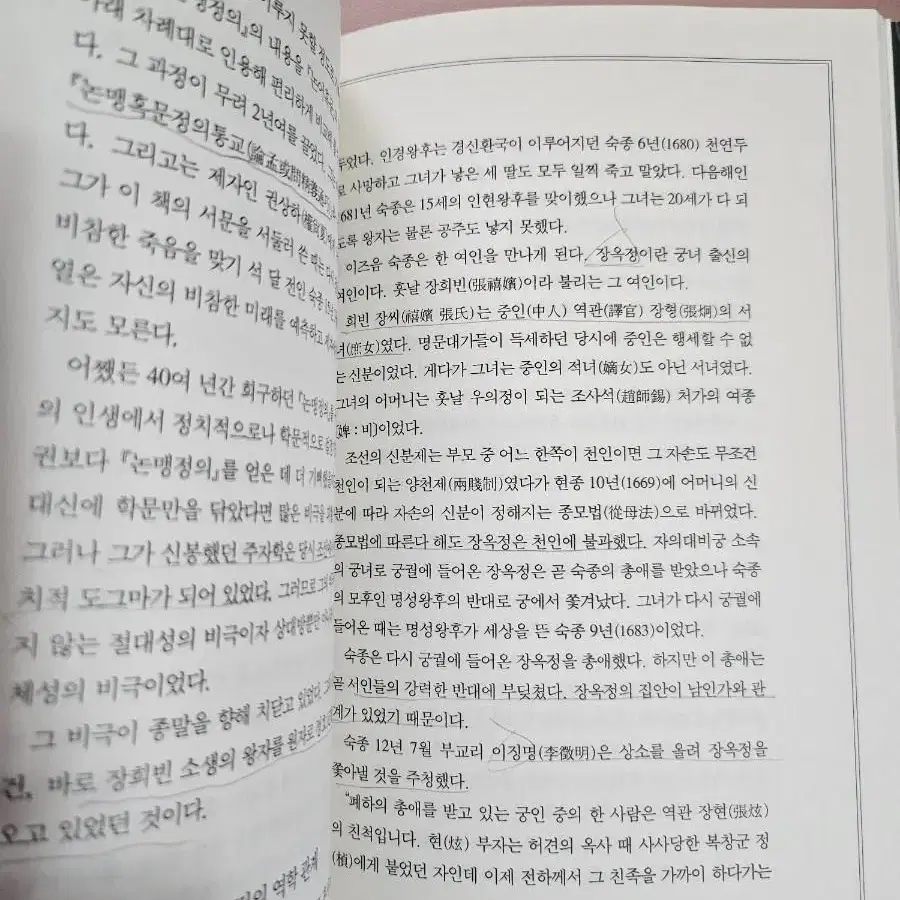 이루지 못할 정도로
정의』의 내용을
아래 차례대로 인용해 편리하게
다. 그 과정이 무려 2년여를 끌었다.
『논맹혹문정의통교
다. 그리고는 제자인 권상하
그가 이 책의 서문을 서둘러 쓴
비참한 죽음을 맞기 석 달 전인 숙종
열은 자신의 비참한 미래를 예측하고
지도 모른다.
어쨌든 40여 년간 희구하던
의 인생에서 정치적으로나 학문적으로
권보다 『논맹정의』를 얻은 데 더
대신에 학문만을 닦았다면 많은 비극을
그러나 그가 신봉했던 주자학은 당시
치적 도그마가 되어 있었다. 그러므로
지 않는 절대성의 비극이자 상대방뿐만
체성의 비극이었다.
그 비극이 종말을 향해 치닫고 있었다.
건, 바로 장희빈 소생의 왕자를 원자로
오고 있었던 것이다.
역학 관계
두었다. 인경왕후는 경신환국이 이루어지던 숙종 6년(1680) 천연두
로 사망하고 그녀가 낳은 세 딸도 모두 일찍 죽고 말았다. 다음해인
681년 숙종은 15세의 인현왕후를 맞이했으나 그녀는 20세가 다 되
도록 왕자는 물론 공주도 낳지 못했다.
이즈음 숙종은 한 여인을 만나게 된다. 장옥정이란 궁녀 출신의
여인이다. 훗날 장희빈(張禧嬪)이라 불리는 그 여인이다.
희빈 장씨(禧嬪 張氏)는 중인(中人) 역관(譯官) 장형(張炯)의 서
녀(庶女)였다. 명문대가들이 득세하던 당시에 중인은 행세할 수 없
는 신분이었다. 게다가 그녀는 중인의 적녀(嫡女)도 아닌 서녀였다.
그녀의 어머니는 훗날 우의정이 되는 조사석(趙師錫) 처가의 여종
(婢 : 비)이었다.
조선의 신분제는 부모 중 어느 한쪽이 천인이면 그 자손도 무조건
천인이 되는 양천제(兩賤制)였다가 현종 10년(1669)에 어머니의 신
분에 따라 자손의 신분이 정해지는 종모법(從母法)으로 바뀌었다.
종모법에 따른다 해도 장옥정은 천인에 불과했다. 자의대비궁 소속
의 궁녀로 궁궐에 들어온 장옥정은 곧 숙종의 총애를 받았으나 숙종
의 모후인 명성왕후의 반대로 궁에서 쫓겨났다. 그녀가 다시 궁궐에
들어온 때는 명성왕후가 세상을 뜬 숙종 9년(1683)이었다.
숙종은 다시 궁궐에 들어온 장옥정을 총애했다. 하지만 이 총애는
곧 서인들의 강력한 반대에 부딪쳤다. 장옥정의 집안이 남인가와 관
계가 있었기 때문이다.
숙종 12년 7월 부교리 이징명(李徵明)은 상소를 올려 장옥정을
쫓아낼 것을 주청했다.
“폐하의 총애를 받고 있는 궁인 중의 한 사람은 역관 장현(張炫)
의 친척입니다. 현(炫) 부자는 허견의 옥사 때 사사당한 복창군 정
(楨)에게 붙었던 자인데 이제 전하께서 그 친족을 가까이 하다가는